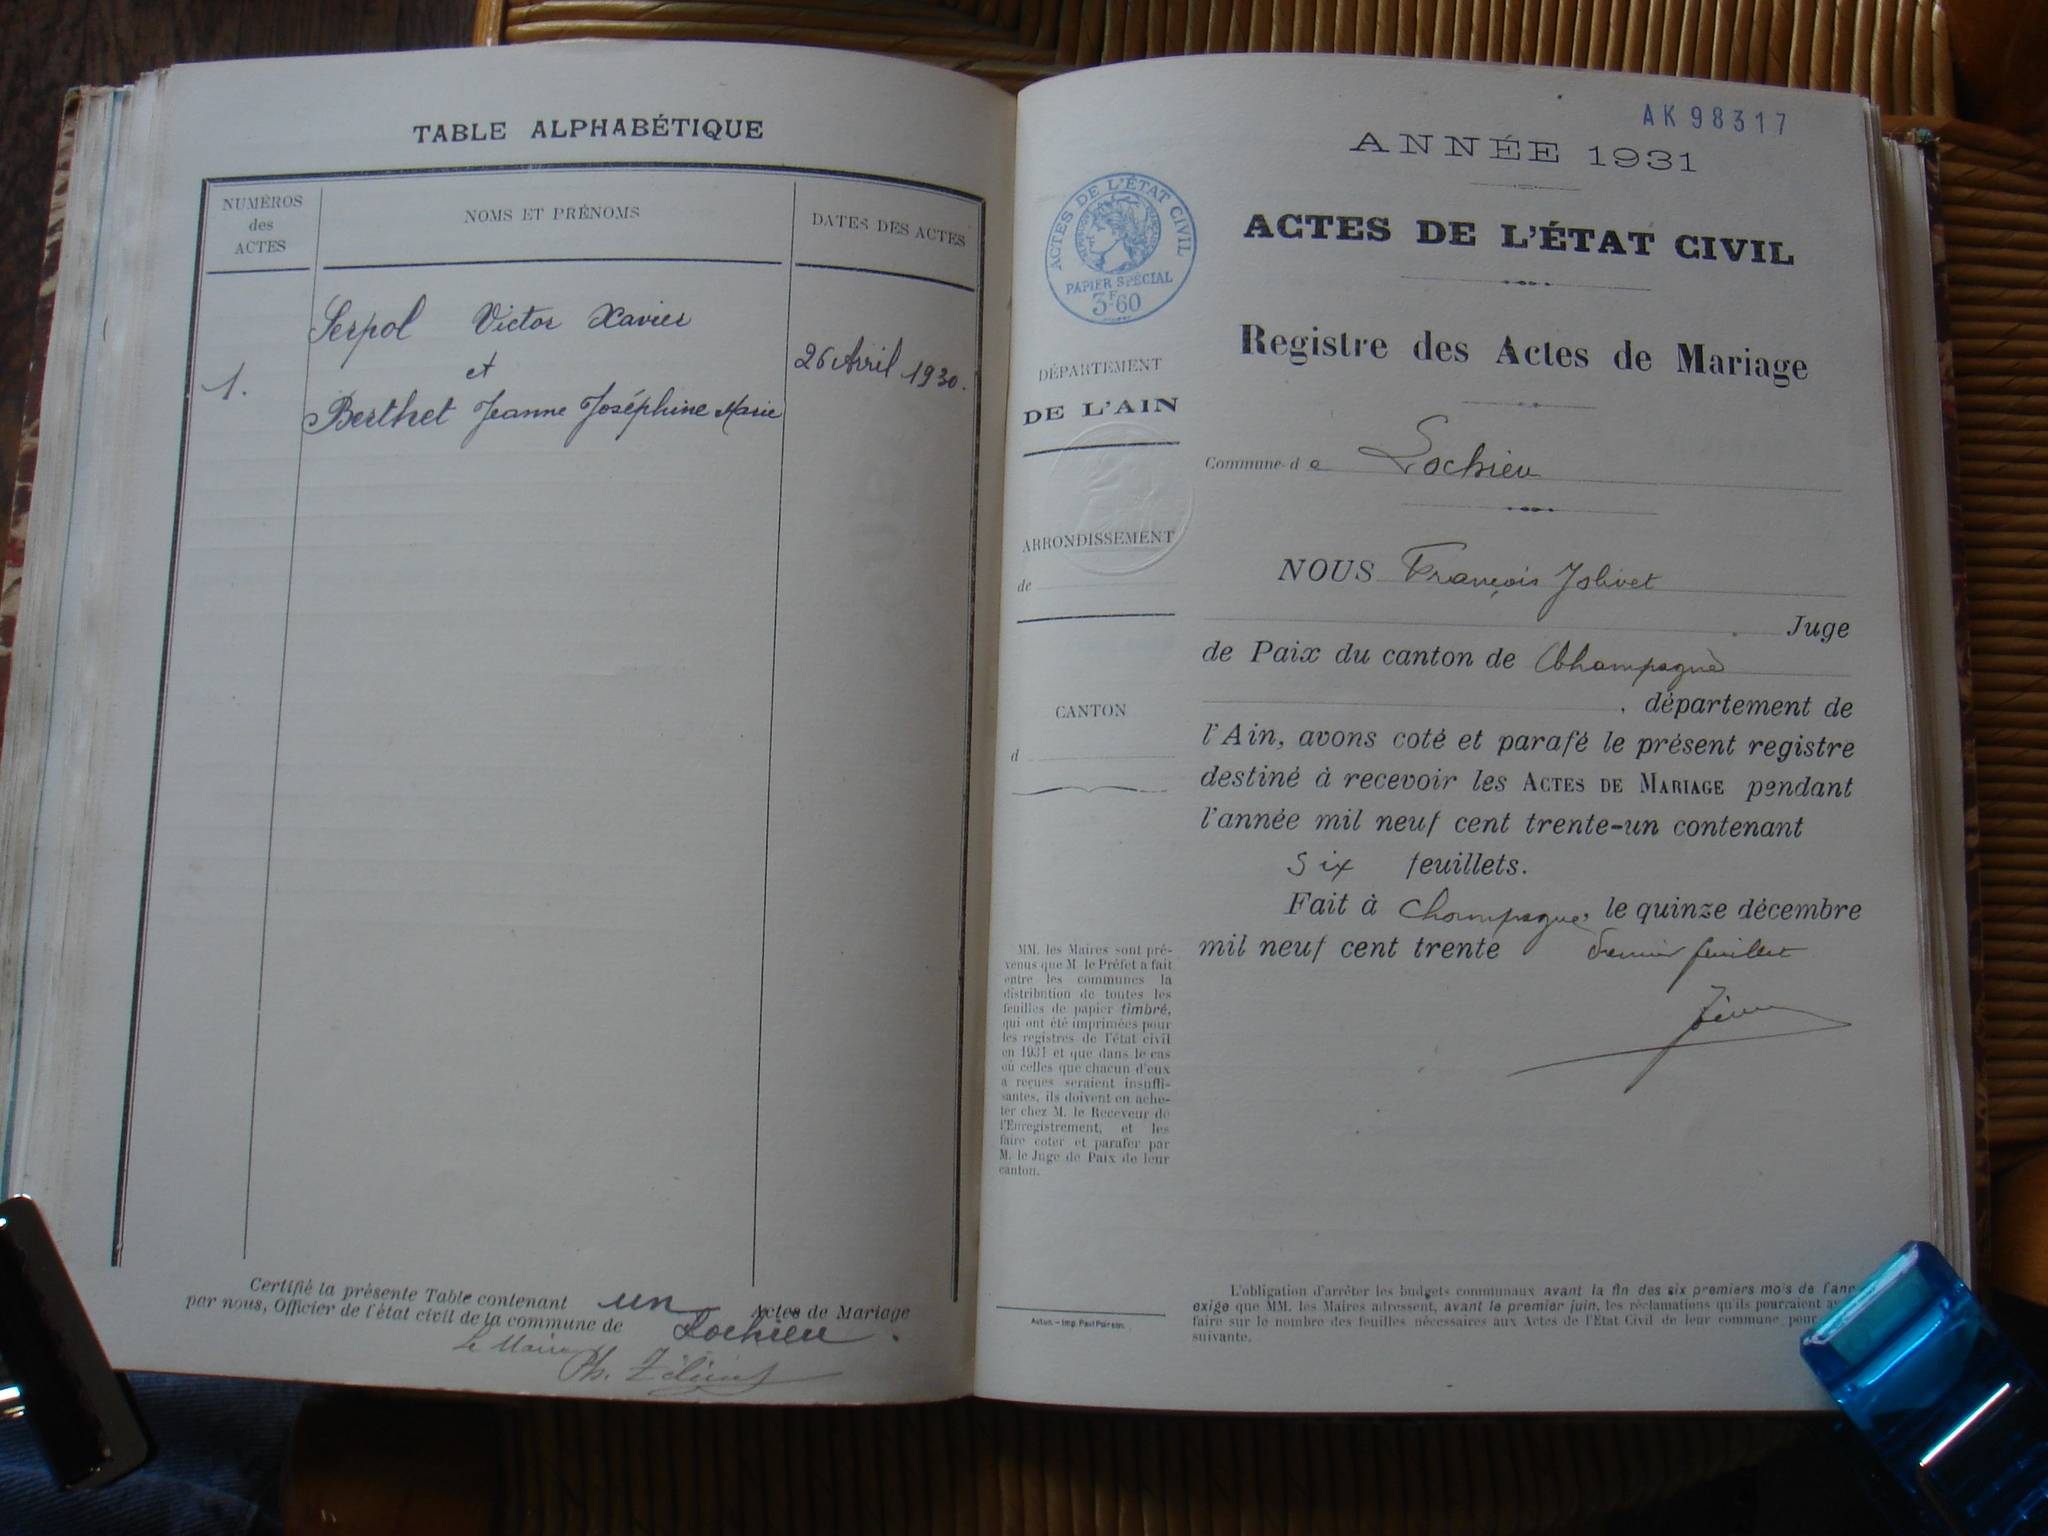 TABLE ALPHABÉTIQUE
NUMÉROS
des
ACTES
NOMS ET PRÉNOMS
DATES DES ACTES
Serpol Victor Xavier
et
1.
26 Avril 1930.
Berthet Jeanne Joséphine Marie
Certifié la présente Table contenant un Actes de Mariage
par nous, Officier de l'état civil de la commune de Lochieu.
Le Maire
Ph.
AK 98317
ANNÉE 1931
ACTES DE L'ÉTAT CIVIL
PAPIER SPÉCIAL
3F60
ACTES DE L'ÉTAT CIVIL
Registre des Actes de Mariage
DÉPARTEMENT
DE L'AIN
Commune de Lochieu
ARRONDISSEMENT
de
CANTON
d
NOUS François Jolivet
Juge
de Paix du canton de Champagne
, département de
l'Ain, avons coté et parafé le présent registre
destiné à recevoir les ACTES DE MARIAGE pendant
l'année mil neuf cent trente-un contenant
six feuillets.
Fait à Champagne, le quinze décembre
mil neuf cent trente
feuillet
MM. les Maires sont pré-
venus que M. le Préfet a fait
entre les communes la
distribution de toutes les
feuilles de papier timbré,
qui ont été imprimées pour
les registres de l'état civil
en 1931 et que dans le cas
où celles que chacun d'eux
a reçues seraient insuffi-
santes, ils doivent en ache-
ter chez M. le Receveur de
l'Enregistrement, et les
faire coter et parafer par
M. le Juge de Paix de leur
canton.
Autun. — Imp. Paul
L'obligation d'arrêter les budgets communaux avant la fin des six premiers mois de l'ann
exige que MM. les Maires adressent, avant le premier juin, les réclamations qu'ils pourraient av
faire sur le nombre des feuilles nécessaires aux Actes de l'État Civil de leur commune pour
suivante.